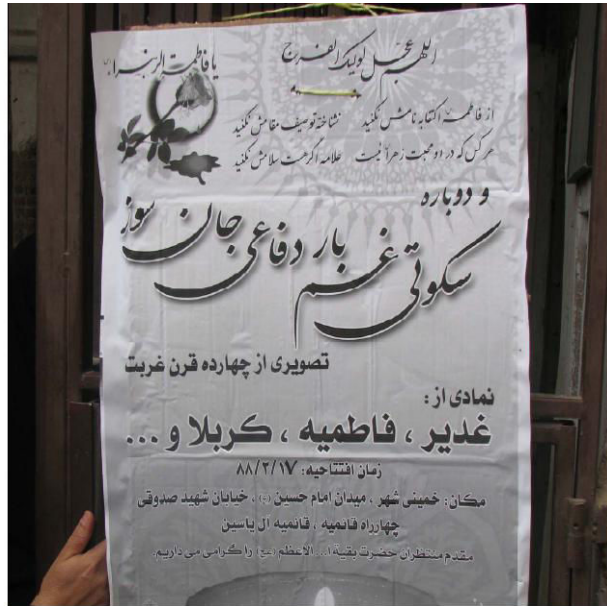 اللهم عجل لولیک الفرج
یا فاطمة الزهراء
از فاطمه اکتفا به نامش نکنید نشناخته توصیف مقامش نکنید
هر کس که در او محبت زهرا نیست علامه اگر هست سلامش نکنید
و دوباره
سکوتی غم بار دفاعی جان سوز
تصویری از چهارده قرن غربت
نمادی از :
غدیر ، فاطمیه ، کربلا و ...
زمان افتتاحیه: ۸۸/۲/۱۷
مکان: خمینی شهر ، میدان امام حسین (ع) ، خیابان شهید صدوقی
چهارراه قائمیه ، قائمیه آل یاسین
مقدم منتظران حضرت بقیة ا... الاعظم (عج) را گرامی می داریم.